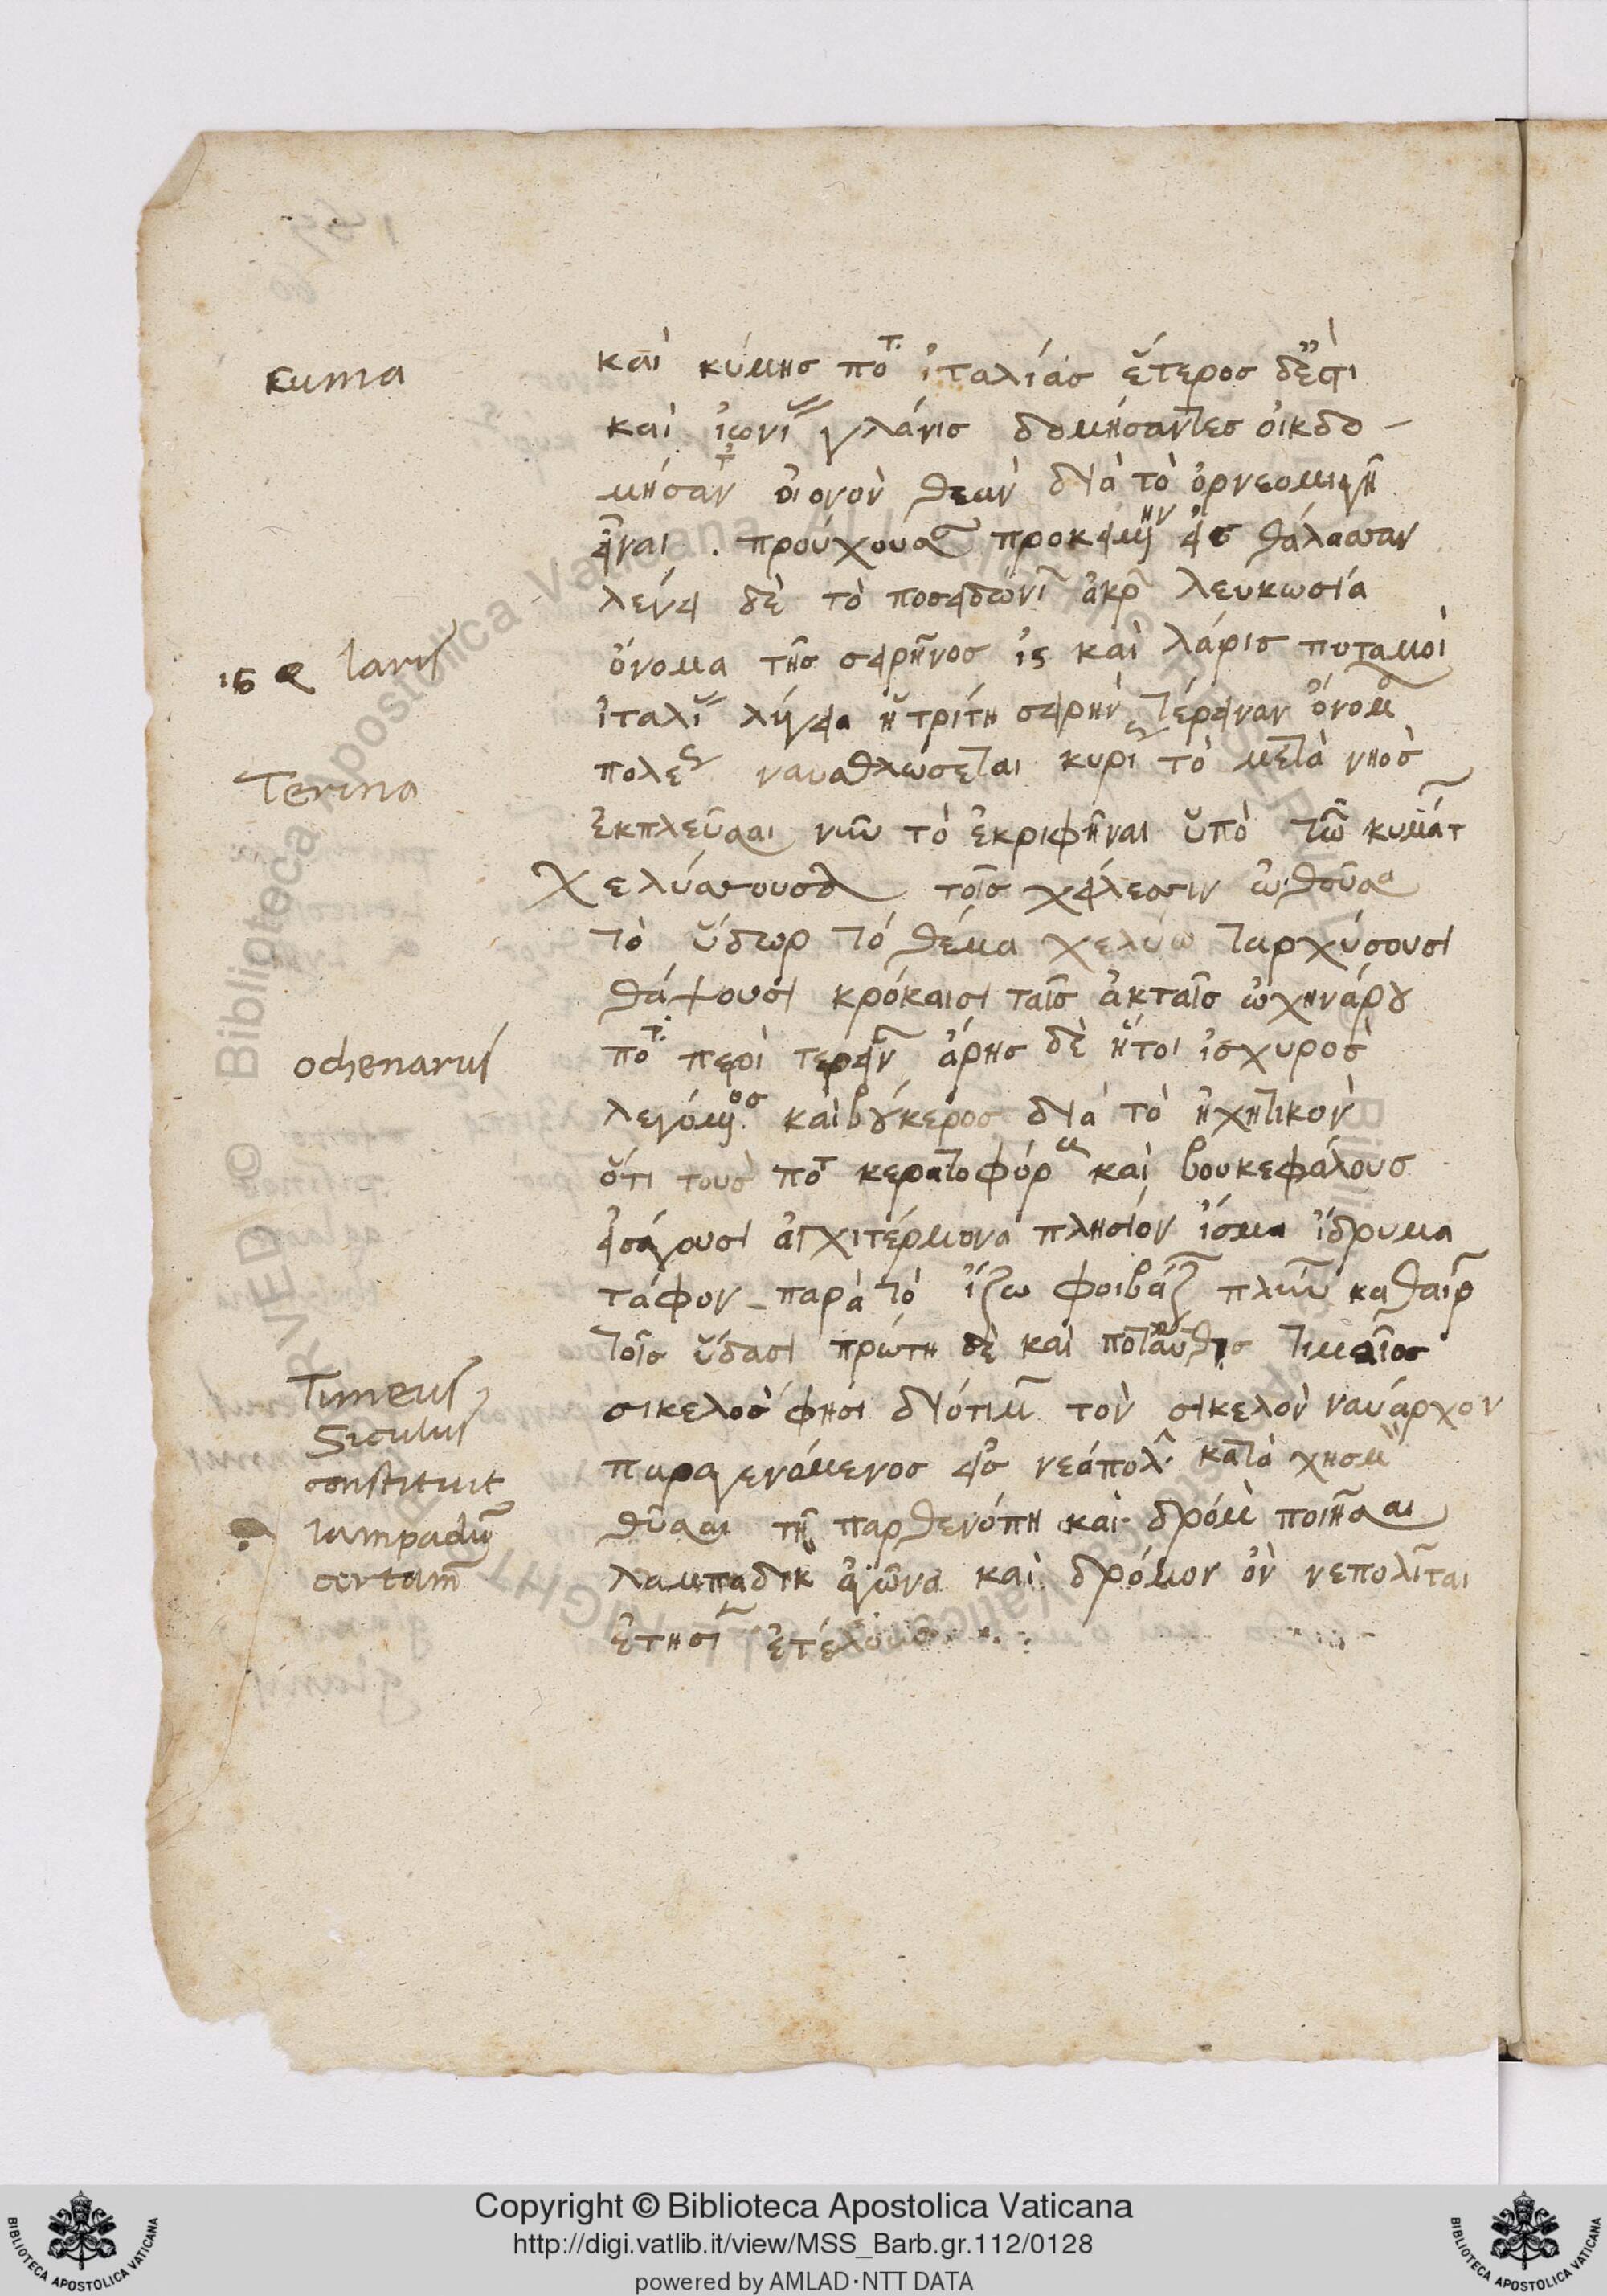 cuma
καὶ κύμησ πο͂τ. ἰταλίασ ἕτεροσ δἔστὶ
καὶ ἰωνι γλάνισ δομήσαντεσ οἰκδο-
μήσαντ οἰονὸν θεὰν διὰ τὸ ὀρνεομιγῆ
εἶναι . προύχουσαν προκειμένην εἰσ θάλασσαν
λέγει δὲ τὸ ποσειδώνι ἀκρ λευκωσία
is & laris
ὄνομα τῆσ σειρῆνοσ ἲς καὶ λάρισ ποταμοὶ
ἰταλι λίγεια ἡ τρίτη σειρὴν τέρειναν ὄνομ
Terina
πολε ναυσθλώσεται κυρι τὸ μετὰ νηὸσ
ἐκπλεῦσαι νῦν τὸ ἐκριφῆναι ὑπὸ τῶ κυμάτ
χελύσσουσα τοῖσ χείλεσιν ὠθοῦσα
τὸ ὕδωρ τὸ θέμα χελύω ταρχύσουσι
θάψουσι κρόκαισι ταῖσ ἀκταῖσ ὠχηνάρου
ochenarus
πο͂τ. περὶ τερειν ἄρησ δὲ ἤτοι ἰσχυροσ
λεγόμενοσ καὶ βούκεροσ διὰ τὸ ἠχητικὸν
ὅτι τουσ ποτ κερατοφόρ καὶ βουκεφάλουσ
εἰσάγουσι ἀγχιτέρμονα πλησίον ἴσμα ἵδρυμα
τάφον - παρὰ τὸ ἵζω φοιβάζ πλύν καθαίρ
τοῖσ ὕδασι πρώτη δὲ καὶ ποταυθισ τιμαῖοσ
Timeus
Siculus
constituit
lampadum
certam
σικελοσ φησι διότιμ τὸν σικελὸν ναύαρχον
παραγενάμενοσ εἰσ νεάπολ κατὰ χησμ
θῦσαι τῆ παρθενόπη καὶ δρόμ ποιῆσαι
λαμπαδικ ἀγῶνα καὶ δρόμον ὃν νεπολῖται
ἐτησι ἐτέλουν
Copyright © Biblioteca Apostolica Vaticana
http://digi.vatlib.it/view/MSS_Barb.gr.112/0128
powered by AMLAD·NTT DATA
BIBLIOTECA APOSTOLICA VATICANA
BIBLIOTECA APOSTOLICA VATICANA